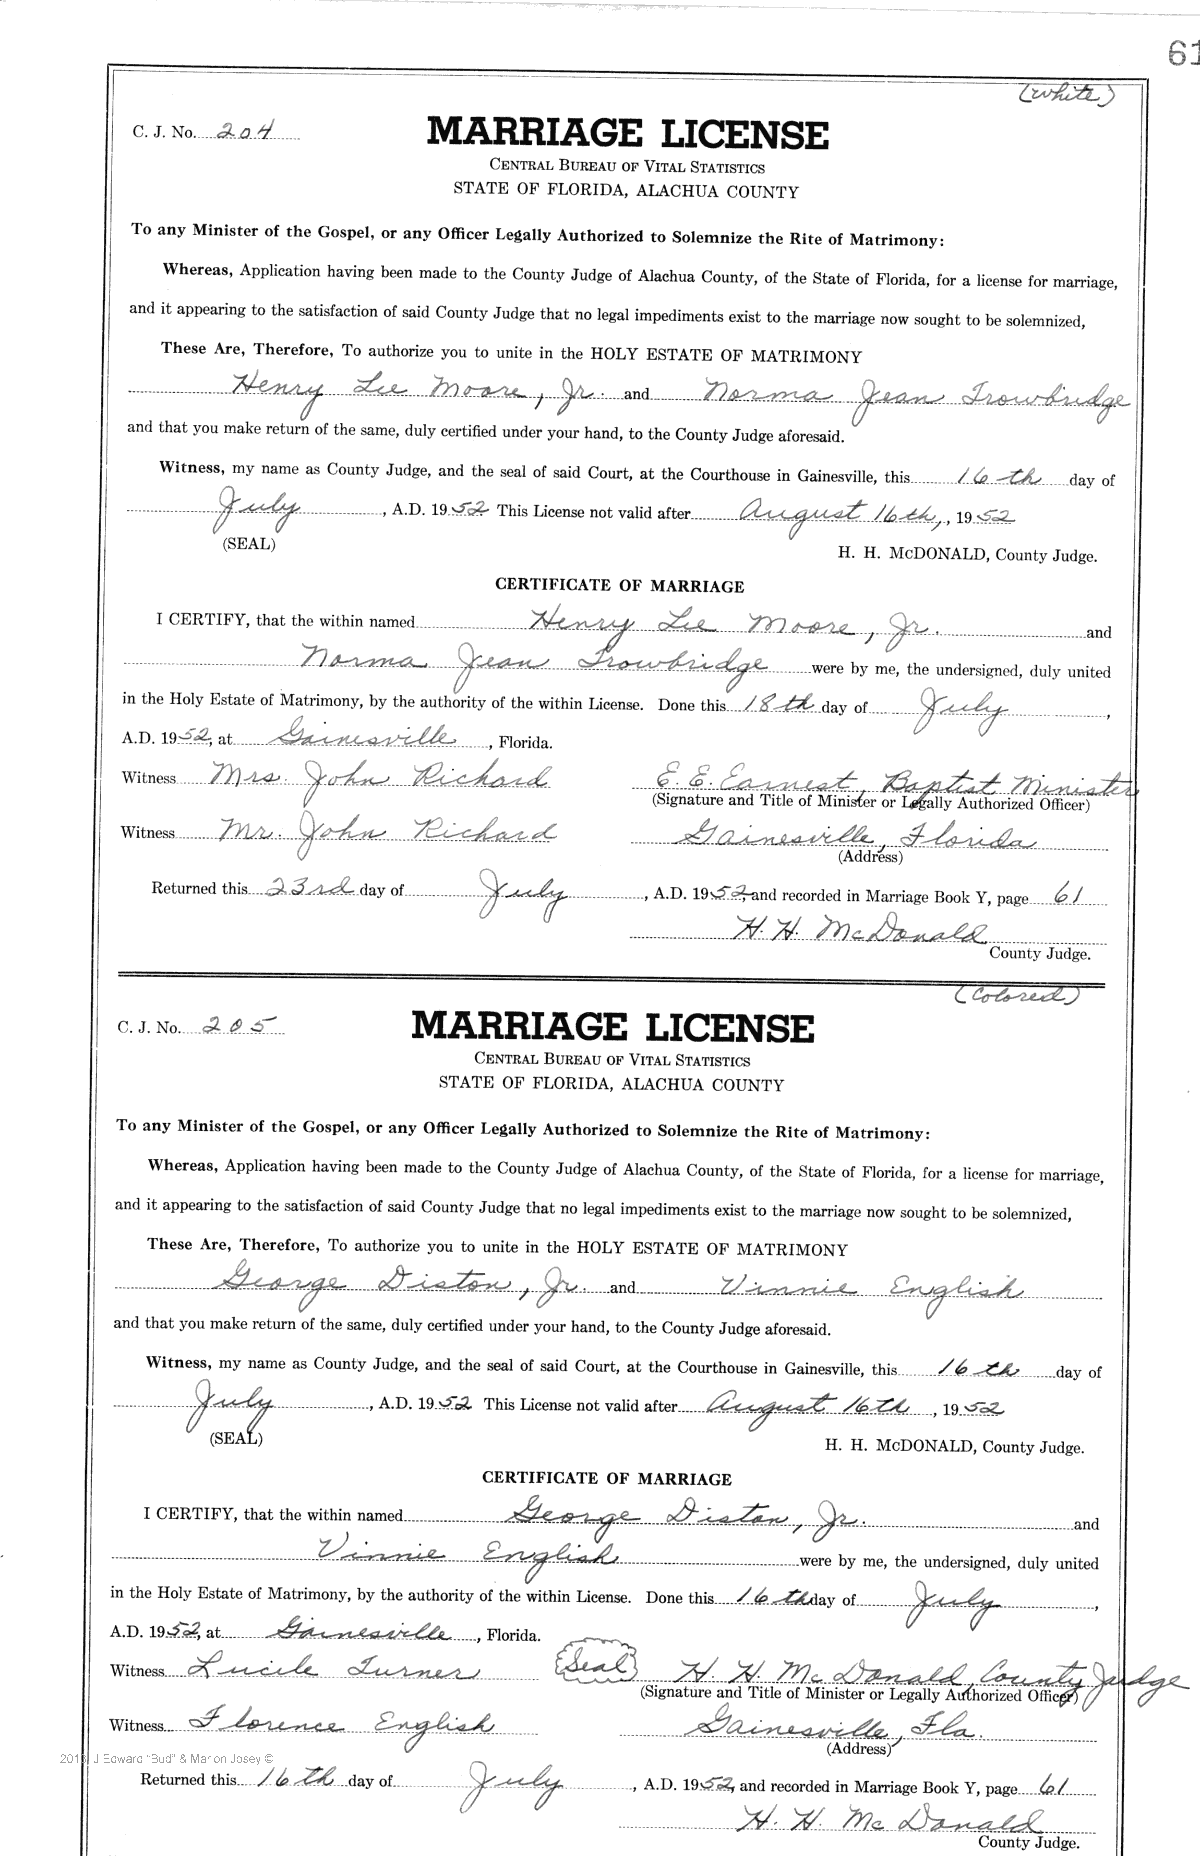 61
(White)
C. J. No. 204
MARRIAGE LICENSE
CENTRAL BUREAU OF VITAL STATISTICS
STATE OF FLORIDA, ALACHUA COUNTY
To any Minister of the Gospel, or any Officer Legally Authorized to Solemnize the Rite of Matrimony:
Whereas, Application having been made to the County Judge of Alachua County, of the State of Florida, for a license for marriage,
and it appearing to the satisfaction of said County Judge that no legal impediments exist to the marriage now sought to be solemnized,
These Are, Therefore, To authorize you to unite in the HOLY ESTATE OF MATRIMONY
Henry Lee Moore, Jr. and Norma Jean Trowbridge
and that you make return of the same, duly certified under your hand, to the County Judge aforesaid.
Witness, my name as County Judge, and the seal of said Court, at the Courthouse in Gainesville, this 16th day of
July, A.D. 1952 This License not valid after August 16th, , 1952
(SEAL)
H. H. McDONALD, County Judge.
CERTIFICATE OF MARRIAGE
I CERTIFY, that the within named Henry Lee Moore, Jr. and
Norma Jean Trowbridge were by me, the undersigned, duly united
in the Holy Estate of Matrimony, by the authority of the within License. Done this 18th day of July,
A.D. 1952, at Gainesville, Florida.
Witness Mrs. John Richard E. E. Earnest, Baptist Minister
(Signature and Title of Minister or Legally Authorized Officer)
Witness Mr. John Richard Gainesville, Florida
(Address)
Returned this 23rd day of July, A.D. 1952, and recorded in Marriage Book Y, page 61
H. H. McDonald
County Judge.
(Colored)
C. J. No. 205
MARRIAGE LICENSE
CENTRAL BUREAU OF VITAL STATISTICS
STATE OF FLORIDA, ALACHUA COUNTY
To any Minister of the Gospel, or any Officer Legally Authorized to Solemnize the Rite of Matrimony:
Whereas, Application having been made to the County Judge of Alachua County, of the State of Florida, for a license for marriage,
and it appearing to the satisfaction of said County Judge that no legal impediments exist to the marriage now sought to be solemnized,
These Are, Therefore, To authorize you to unite in the HOLY ESTATE OF MATRIMONY
George Diston, Jr. and Vinnie English
and that you make return of the same, duly certified under your hand, to the County Judge aforesaid.
Witness, my name as County Judge, and the seal of said Court, at the Courthouse in Gainesville, this 16th day of
July, A.D. 1952 This License not valid after August 16th, 1952
(SEAL)
H. H. McDONALD, County Judge.
CERTIFICATE OF MARRIAGE
I CERTIFY, that the within named George Diston, Jr. and
Vinnie English were by me, the undersigned, duly united
in the Holy Estate of Matrimony, by the authority of the within License. Done this 16th day of July,
A.D. 1952, at Gainesville, Florida.
Witness Lucile Turner (Seal) H. H. McDonald, County Judge
(Signature and Title of Minister or Legally Authorized Officer)
Witness Florence English Gainesville, Fla.
(Address)
J Edward "Bud" & Marion Josey ©
Returned this 16th day of July, A.D. 1952, and recorded in Marriage Book Y, page 61
H. H. McDonald
County Judge.